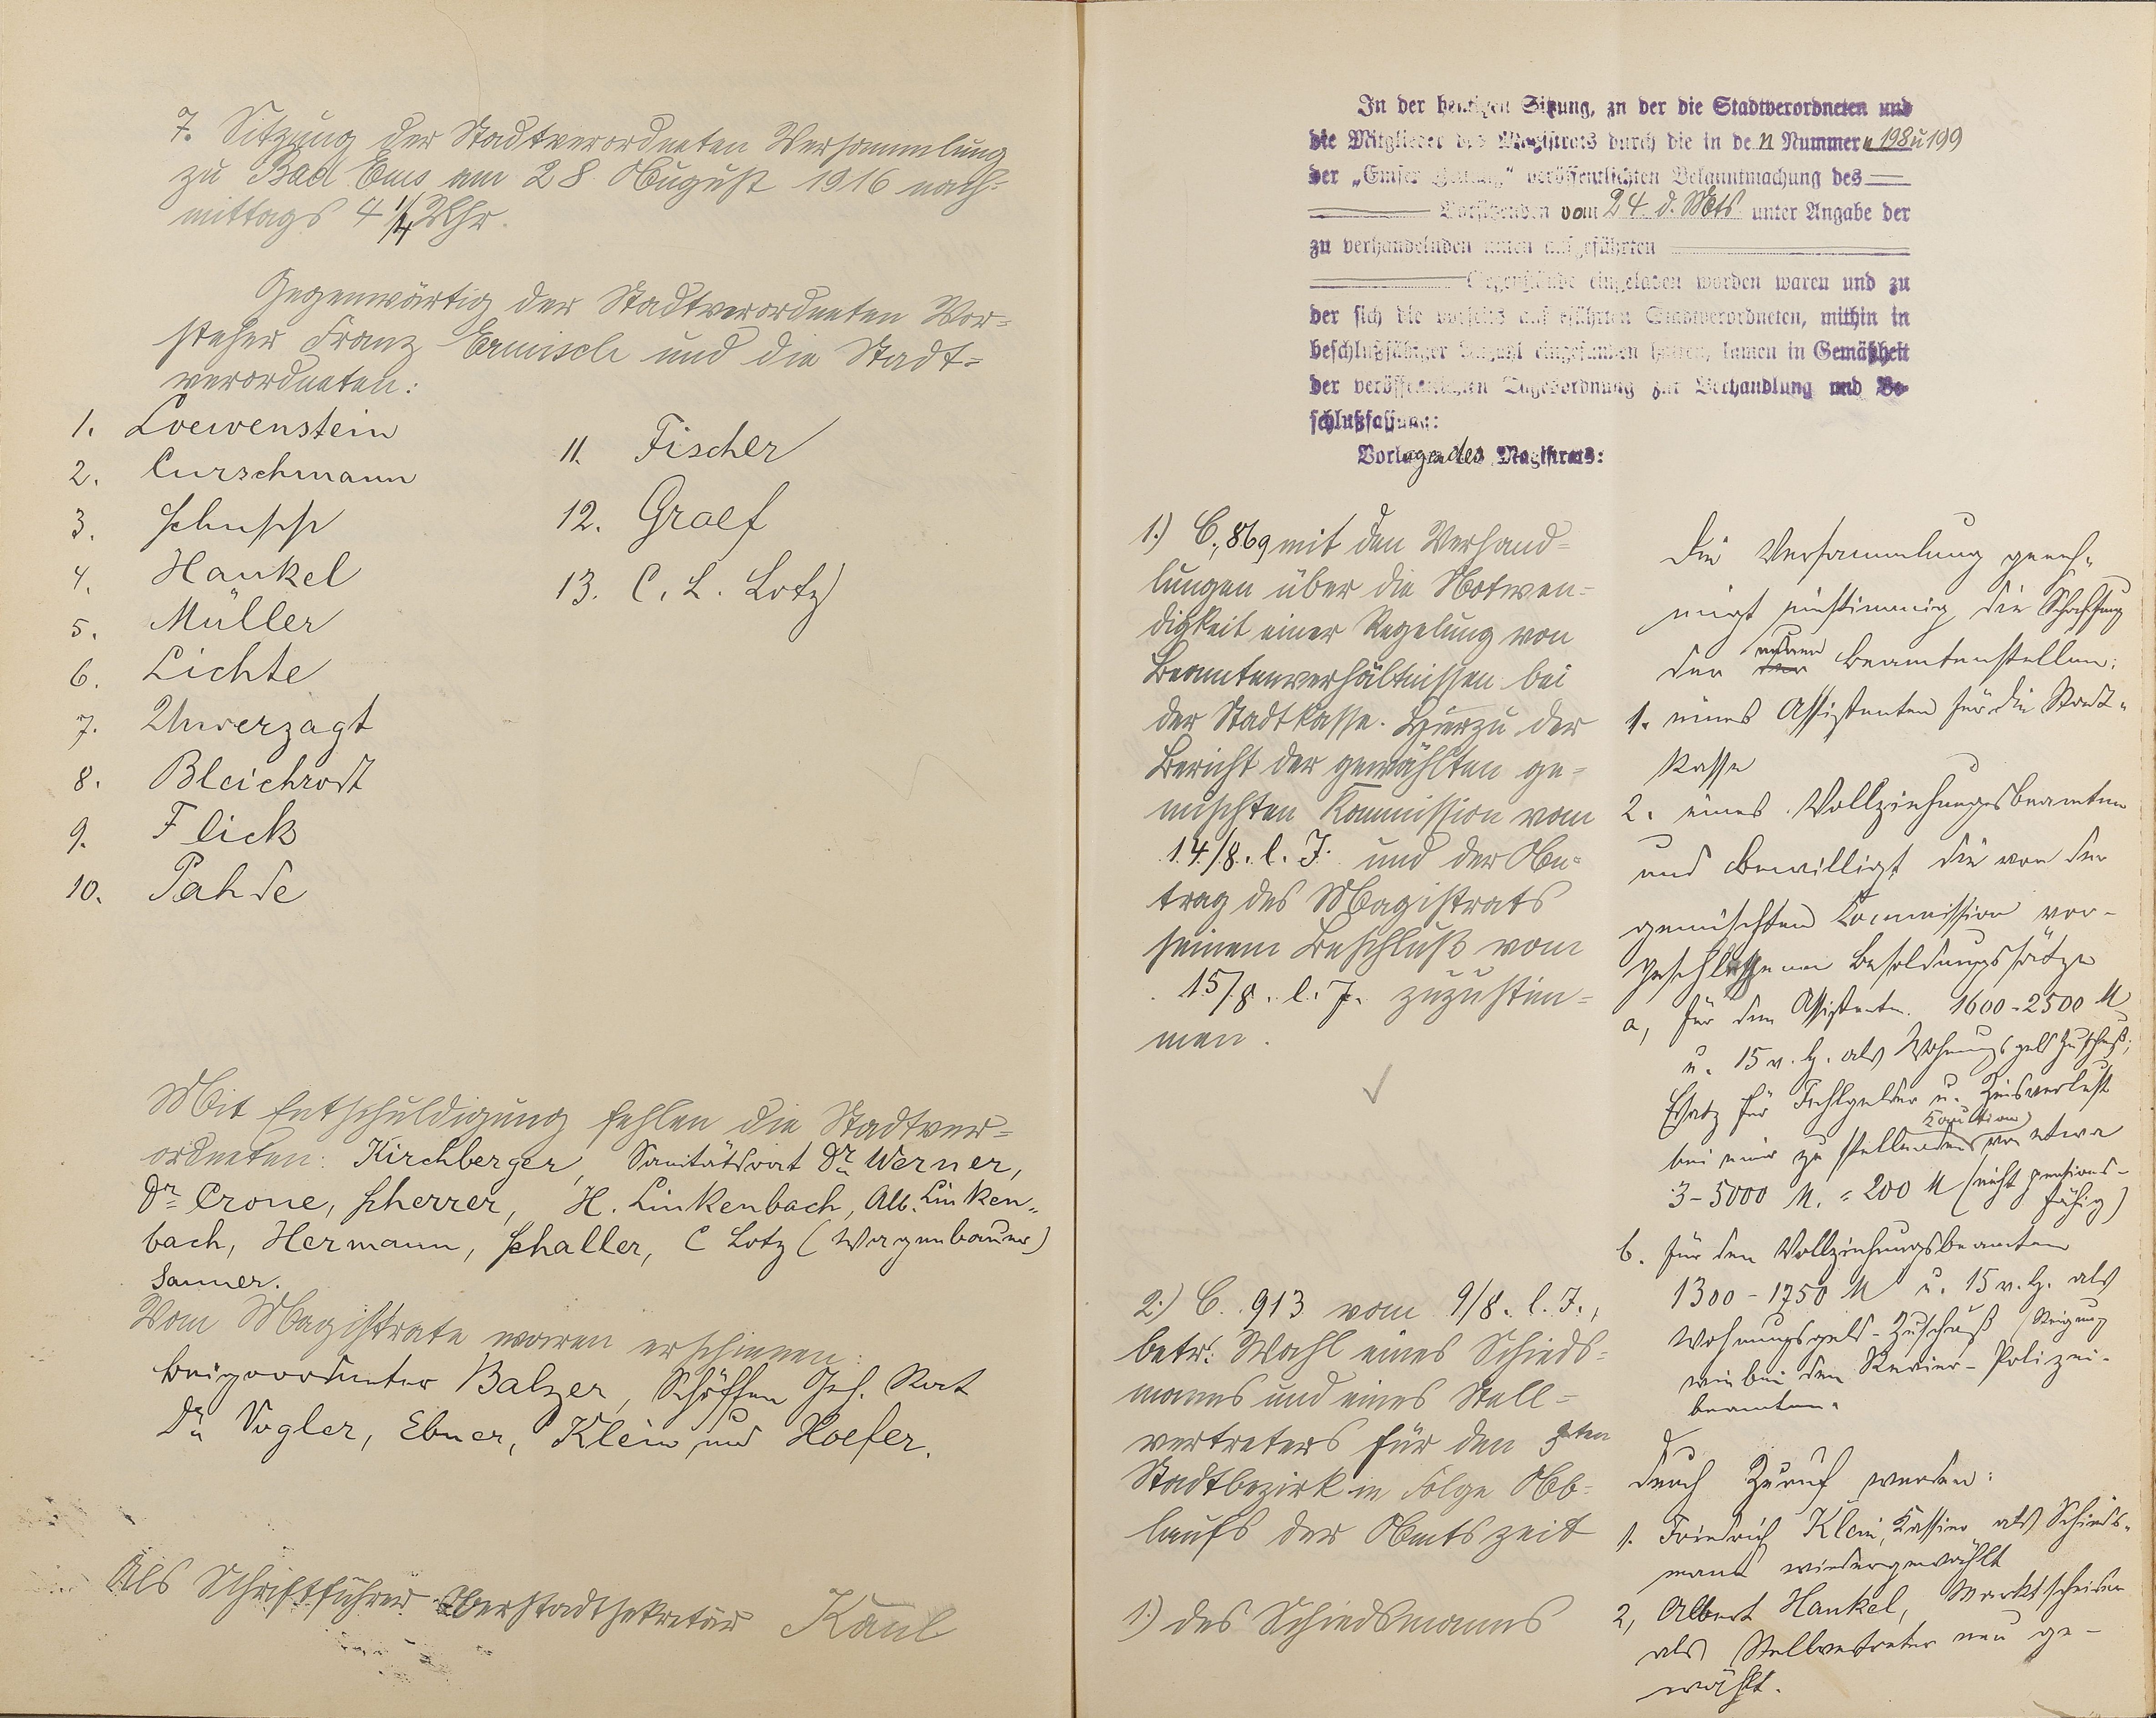 7. Sitzung der Stadtverordneten Versammlung
zu Bad Ems am 28 August 1916 nach-
mittags 4 1/4 Uhr.
Gegenwärtig der Stadtverordneten Vor-
steher Franz Ermisch und die Stadt-
verordneten:
1. Loewenstein
2. Curschmann
3. Schupp
4. Hankel
5. Müller
6. Lichte
7. Unverzagt
8. Bleichrodt
9. Flick
10. Pahde
11. Fischer
12. Graef
13. C. L. Lotz
Mit Entschuldigung fehlen die Stadtver-
ordneten: Kirchberger, Sanitätsrat Dr. Werner,
Dr. Crone, Scherrer, H. Linkenbach, Alb. Linken-
bach, Hermann, Schaller, C Lotz (Wagenbauer)
Sanner.
Vom Magistrate waren erschienen:
Beigeordneter Balzer, Schöffen Geh. Rat
Dr. Vogler, Ebner, Klein und Hoefer.
Als Schriftführer Oberstadtsekretär Kaul
In der heutigen Sitzung, zu der die Stadtverordneten und
die Mitglieder des Magistrats durch die in den Nummern 198 u 199
der „Emser Zeitung" veröffentlichten Bekanntmachung des
Vorsitzenden vom 24. d. Mts. unter Angabe der
zu verhandelnden unten aufgeführten
Gegenstände eingeladen worden waren und zu
der sich die vorseits aufgeführten Stadtverordneten, mithin in
beschlußfähiger Anzahl eingefunden hatten, kamen in Gemäßheit
der veröffentlichten Tagesordnung zur Verhandlung und Be-
schlußfassung:
Vorlagen des Magistrats:
1.) C. 869 mit den Verhand-
lungen über die Notwen-
digkeit einer Regelung von
Beamtenverhältnissen bei
der Stadtkasse. Hierzu der
Bericht der gewählten ge-
mischten Kommission vom
14/8. l. J. und der An-
trag des Magistrats
seinem Beschluß vom
15/8. l. J. zuzustim-
men.
Die Versammlung geneh-
migt einstimmig die Schaffung
der neuen Beamtenstellen:
1. eines Assistenten für die Stadt-
kasse
2. eines Vollziehungsbeamten
und bewilligt die von der
gemischten Commission vor-
geschlagenen Besoldungssätze
a, für den Assistenten 1600-2500 M
u. 15 v. H. als Wohnungsgeldzuschuß;
Ersatz für Fehlgelder u. Zinsverlust
bei einer zu stellenden Kaution von etwa
3-5000 M. = 200 M (nicht pensions-
fähig)
b. für den Vollziehungsbeamten
1300-1750 M u. 15 v. H. als
Wohnungsgeld-Zuschuß (Steigung
wie bei den Revier-Polizei-
beamten.
2.) C. 913 vom 9/8. l. J.,
betr. Wahl eines Schieds-
manns und eines Stell-
vertreters für den
Stadtbezirk in Folge Ab-
laufs der Amtszeit
1.) des Schiedsmanns
Durch Zuruf werden:
1. Friedrich Klein, Kassier als Schieds-
mann wiedergewählt
2, Albert Hankel, Marktscheider
als Stellvertreter neu ge-
wählt.